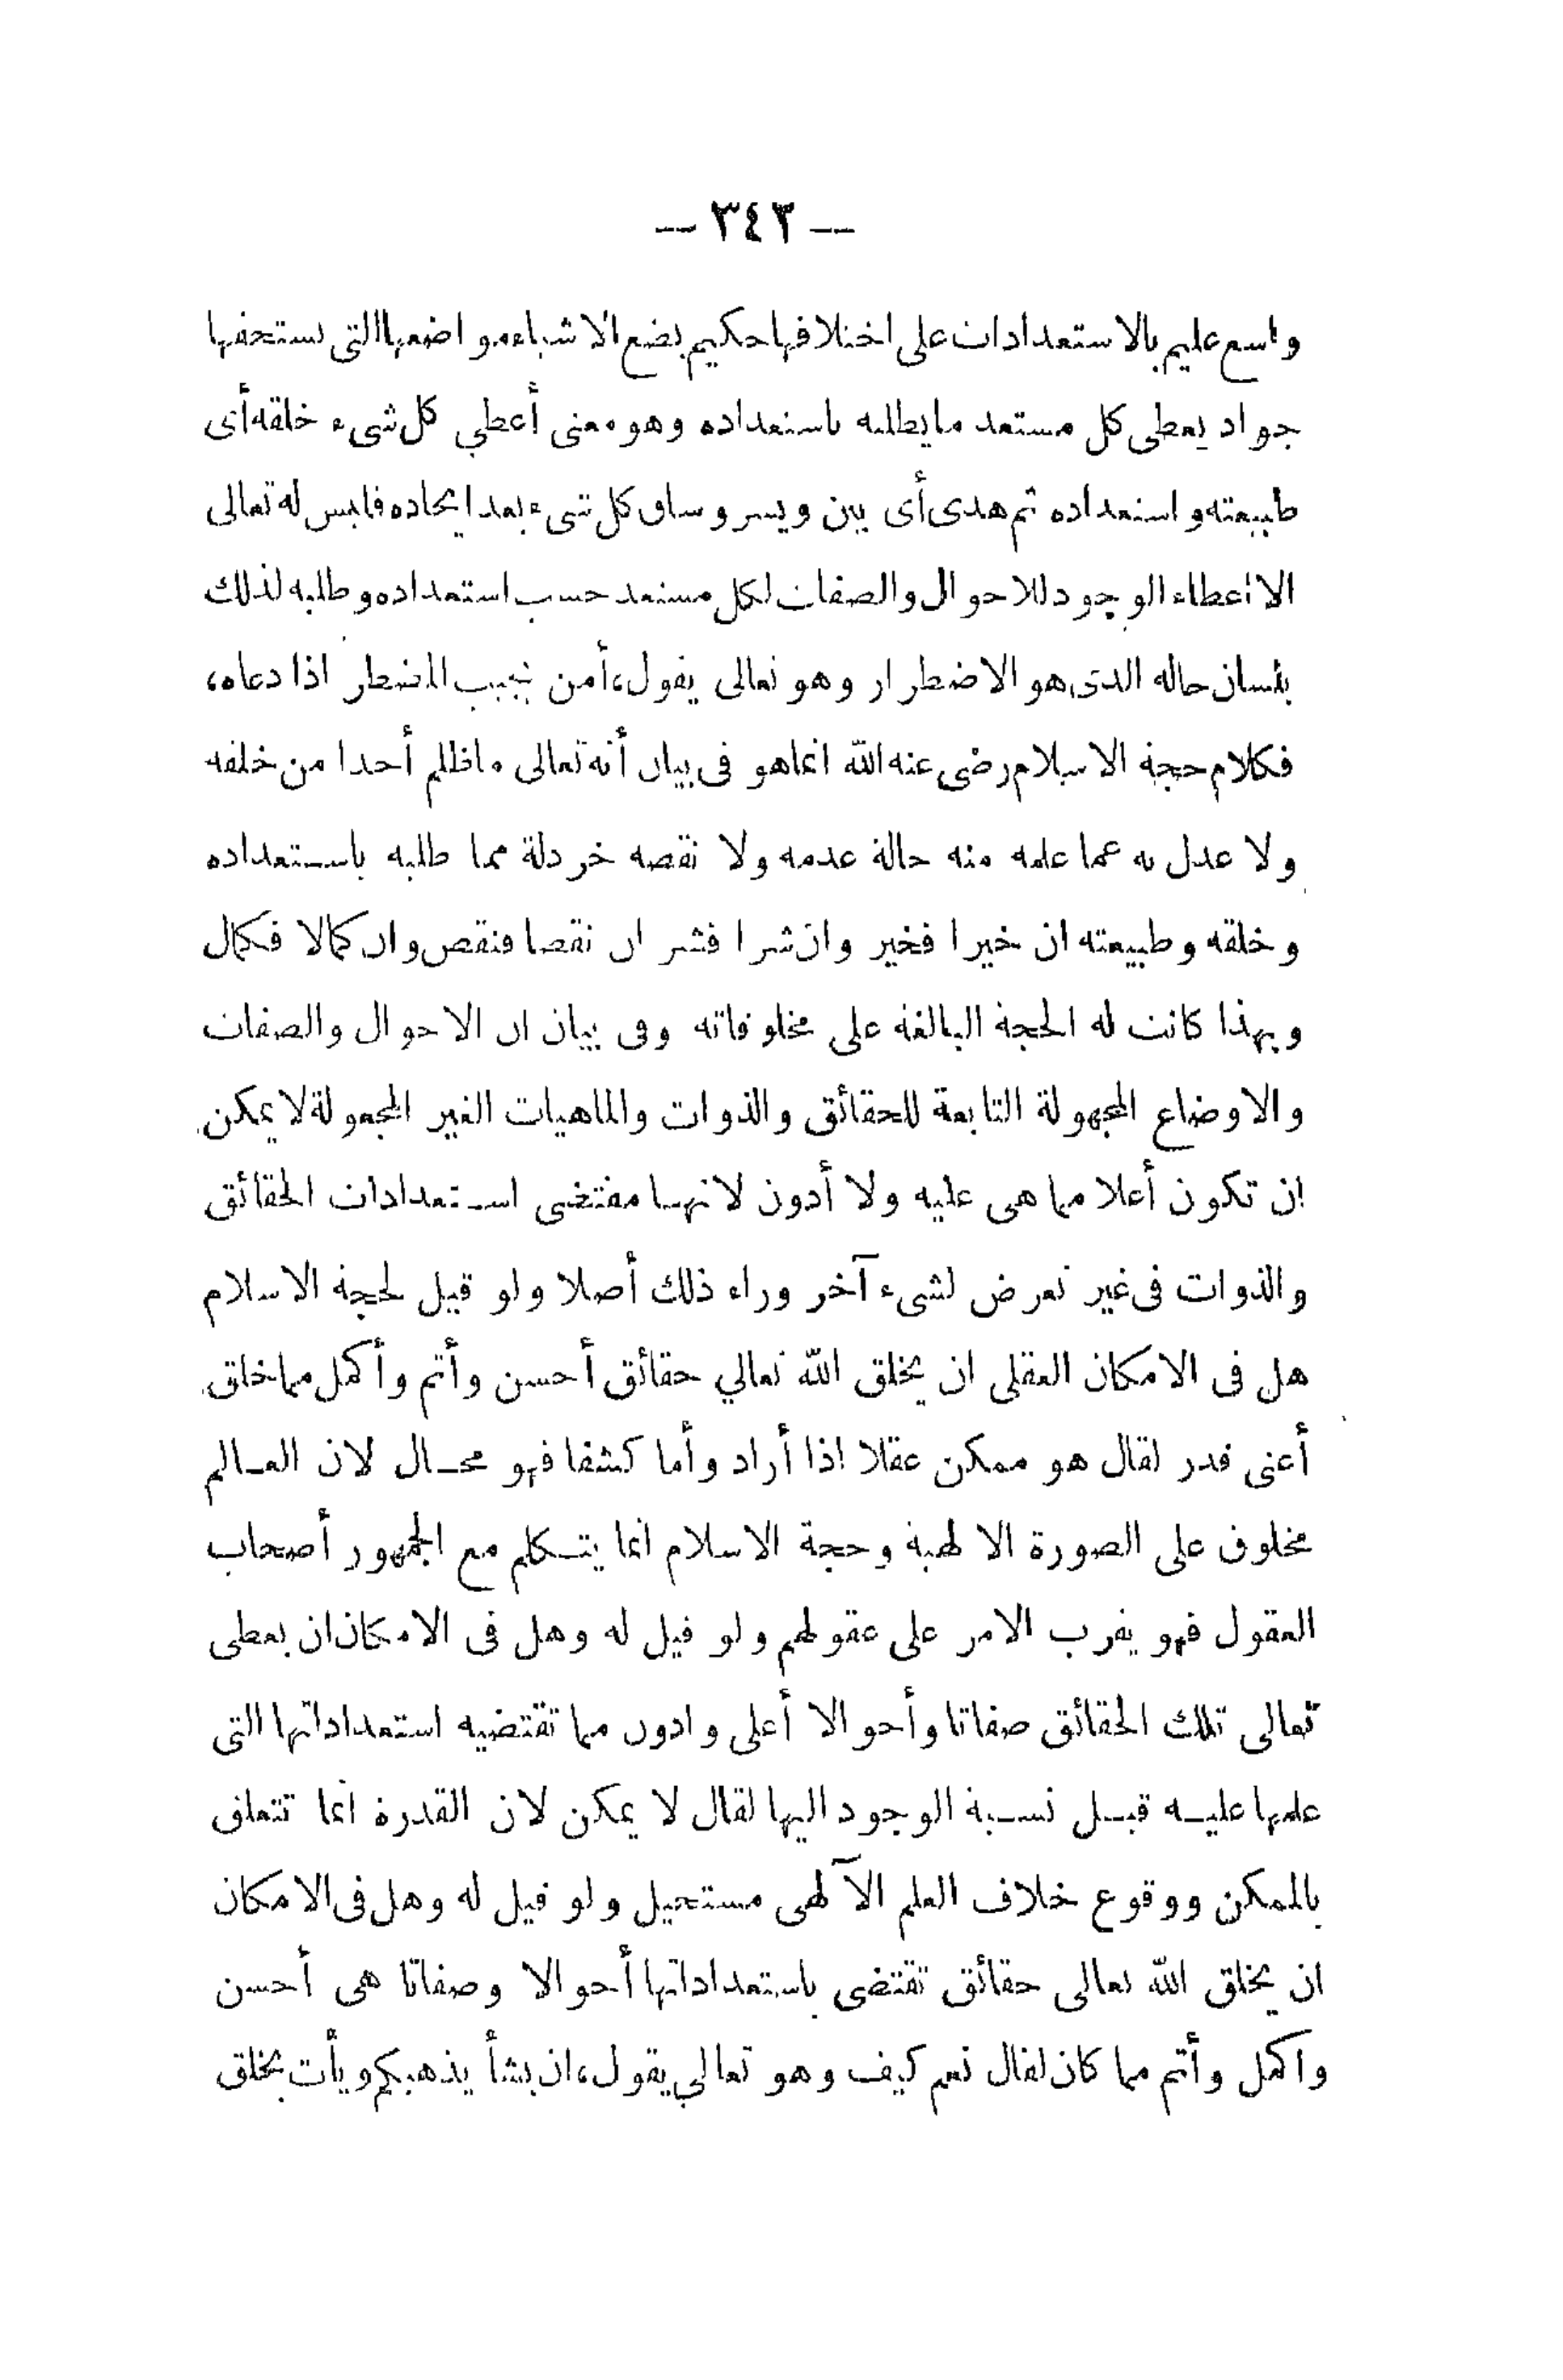 — ٣٤٢ —
واسع عليم بالاستعدادات على اختلافها حكيم يضع الاشياء مواضعها التى تستحقها
جواد يعطى كل مستعد ما يطلبه باستعداده وهو معنى أعطي كل شىء خلقه أى
طبيعته واستعداده ثم هدى أى بين ويسر وساق كل شىء بعد ايجاده فليس له تعالى
الا اعطاء الوجود للاحوال والصفات لكل مستعد حسب استعداده وطلبه لذلك
بلسان حاله الذى هو الاضطرار وهو تعالى يقول، أمن يجيب المضطر اذا دعاه،
فكلام حجة الاسلام رضى عنه الله انما هو فى بيان أنه تعالى ما ظلم أحدا من خلقه
ولا عدل به عما علمه منه حالة عدمه ولا نقصه خردلة مما طلبه باستعداده
وخلقه وطبيعته ان خيرا فخير وان شرا فشر ان نقصا فنقص وان كمالا فكمال
وبهذا كانت له الحجة البالغة على مخلوقاته وفى بيان ان الاحوال والصفات
والاوضاع المجهولة التابعة للحقائق والذوات والماهيات الغير المجعولة لا يمكن
ان تكون أعلا مما هى عليه ولا أدون لانها مقتضى استعدادات الحقائق
والذوات فى غير تعرض لشىء آخر وراء ذلك أصلا ولو قيل لحجة الاسلام
هل فى الامكان العقلى ان يخلق الله تعالي حقائق أحسن وأتم وأكمل مما خلق
أعنى قدر لقال هو ممكن عقلا اذا أراد وأما كشفا فهو محال لان العالم
مخلوق على الصورة الالهية وحجة الاسلام انما يتكلم مع الجمهور أصحاب
العقول فهو يقرب الامر على عقولهم ولو قيل له وهل فى الامكان ان يعطى
تعالى تلك الحقائق صفاتا وأحوالا أعلى وادون مما تقتضيه استعداداتها التى
علمها عليه قبل نسبة الوجود اليها لقال لا يمكن لان القدرة انما تتعلق
بالممكن ووقوع خلاف العلم الآلهى مستحيل ولو قيل له وهل فى الامكان
ان يخلق الله تعالى حقائق تقتضى باستعداداتها أحوالا وصفاتا هى أحسن
واكمل وأتم مما كان لقال نعم كيف وهو تعالي يقول، ان يشأ يذهبكم ويأت بخلق